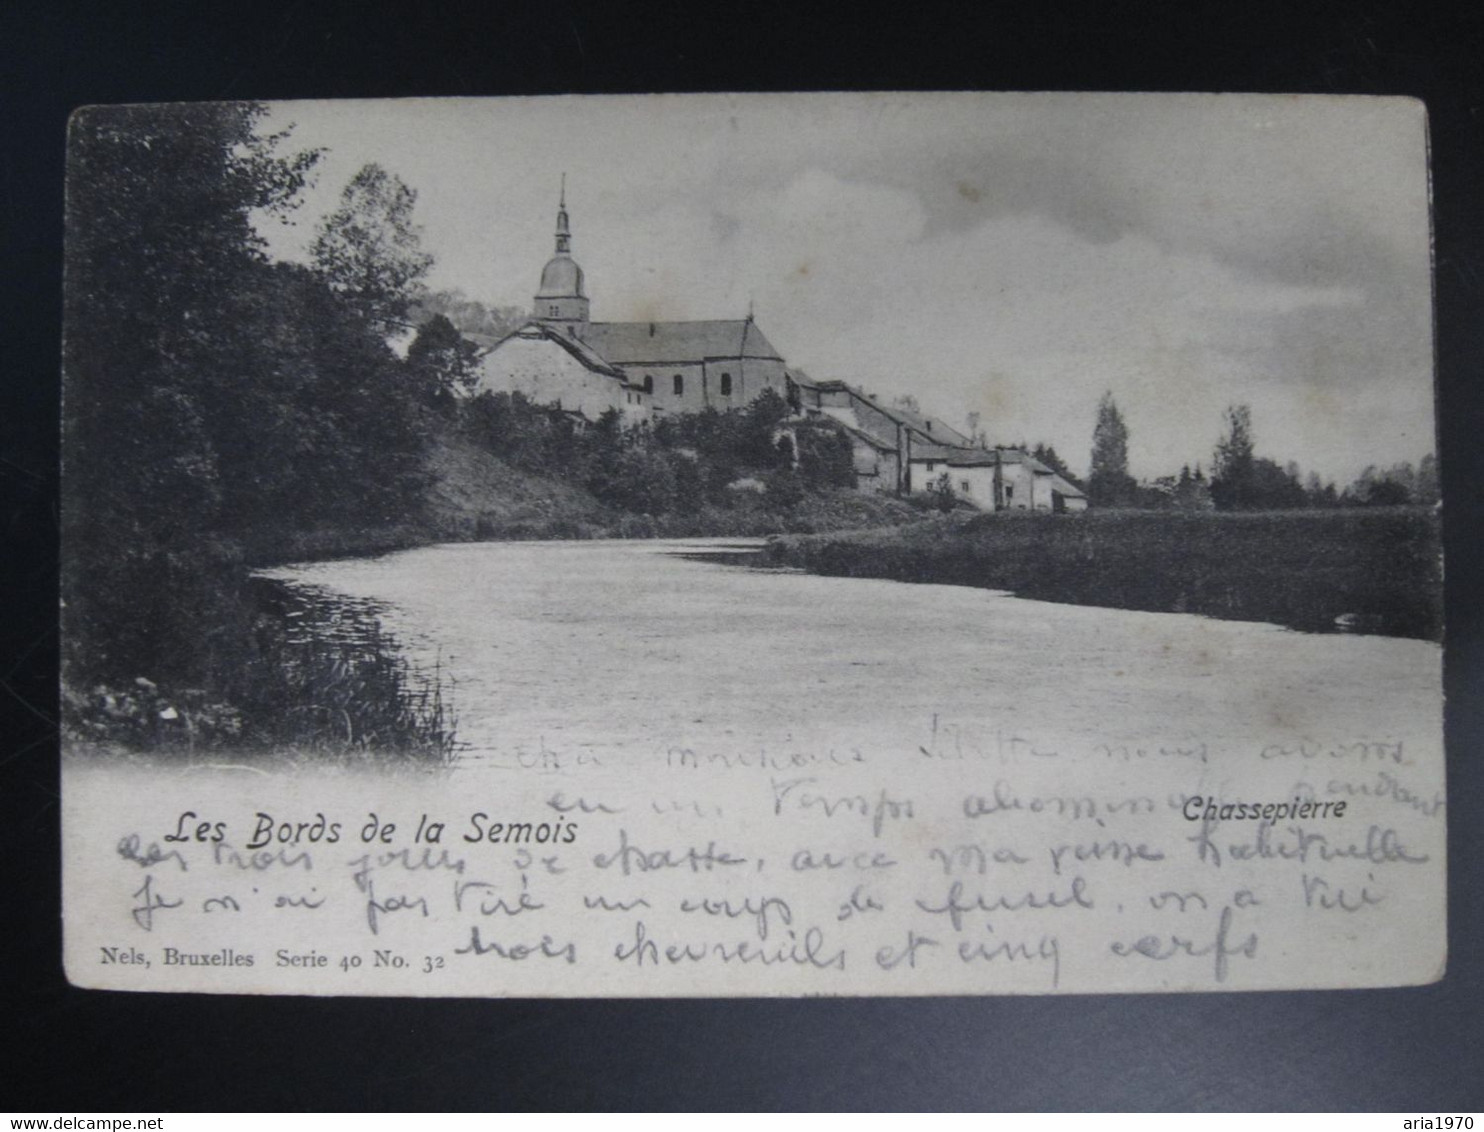 nous avons
en un temps abominable pendant
Les Bords de la Semois
Chassepierre
les trois jours de chasse, avec ma veine habituelle
Je n'ai pas tiré un coup de fusil, on a tué
trois chevreuils et cinq cerfs
Nels, Bruxelles Serie 40 No. 32
delcampe.net
aria1970